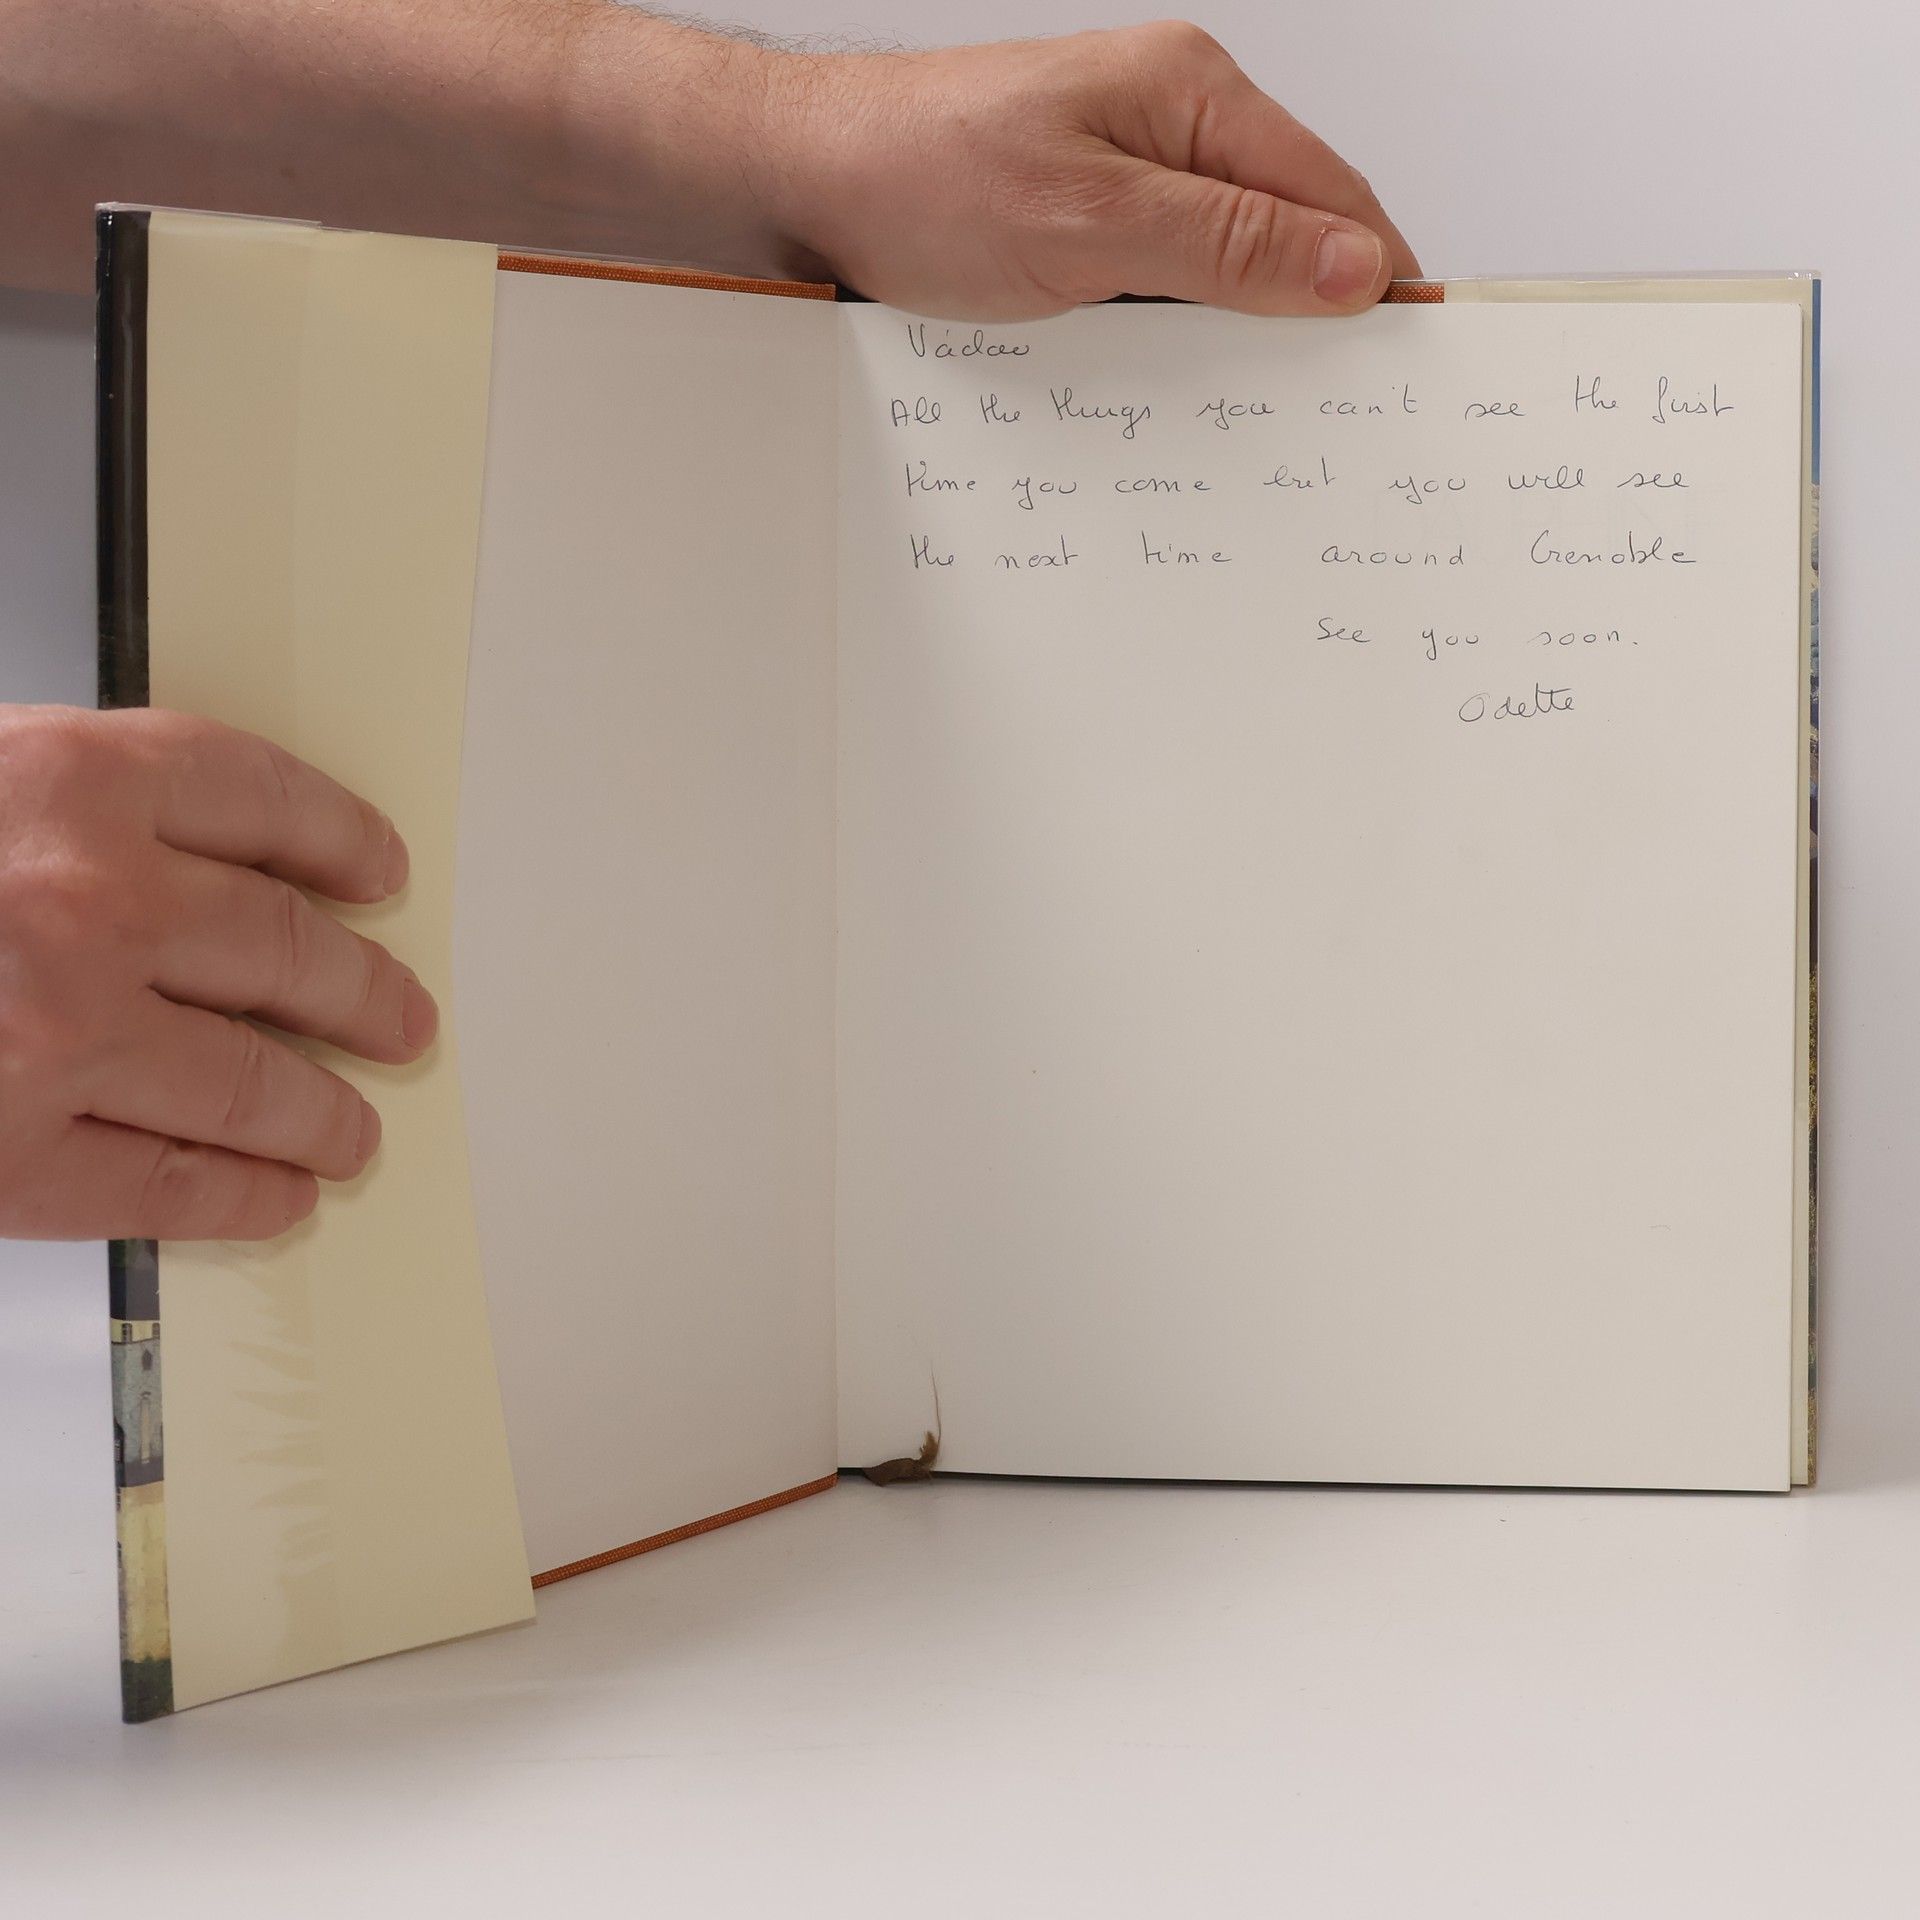 Vádav
All the things you can't see the first
time you come but you will see
the next time around Grenoble
See you soon.
Odette